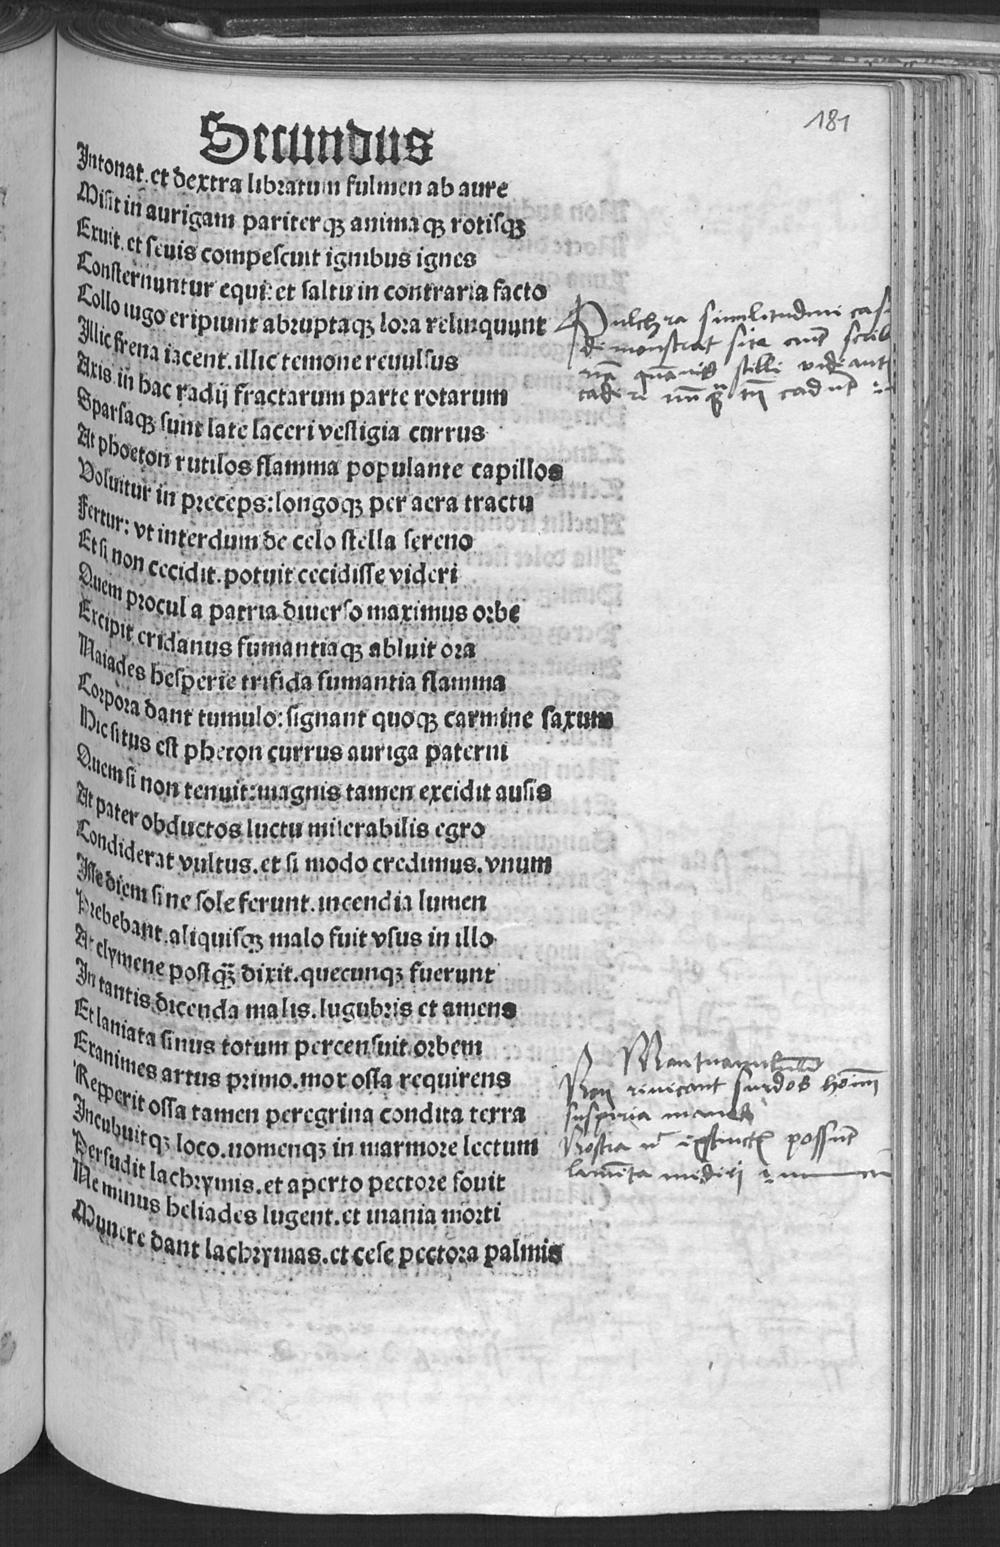 181
Secundus
Intonat. et dextra libratum fulmen ab aure
Misit in aurigam pariterqꝫ animaqꝫ rotisqꝫ
Exuit. et seuis compescuit ignibus ignes
Consternuntur equi: et saltu in contraria facto
Collo iugo eripiunt abruptaqꝫ lora relinquunt
Illic frena iacent. illic temone reuulsus
Axis. in hac radij fractarum parte rotarum
Sparsaqꝫ sunt late laceri vestigia currus
At phoeton rutilos flamma populante capillos
Voluitur in preceps: longoqꝫ per aera tractu
Fertur: vt interdum de celo stella sereno
Et si non cecidit. potuit cecidisse videri
Quem procul a patria diuerso maximus orbe
Excipit eridanus fumantiaqꝫ abluit ora
Naiades hesperie trifida fumantia flamma
Corpora dant tumulo: signant quoqꝫ carmine saxum
Hic situs est pheton currus auriga paterni
Quem si non tenuit: magnis tamen excidit ausis
At pater obductos luctu miserabilis egro
Condiderat vultus. et si modo credimus. vnum
Isse diem sine sole ferunt. incendia lumen
Prebebant. aliquisqꝫ malo fuit vsus in illo
At clymene postqꝫ̃ dixit. quecunqꝫ fuerunt
In tantis dicenda malis. lugubris et amens
Et laniata sinus totum percensuit orbem
Exanimes artus primo. mox ossa requirens
Repperit ossa tamen peregrina condita terra
Incubuitqꝫ loco. nomenqꝫ in marmore lectum
Persudit lachrymis. et aperto pectore fouit
Ne minus heliades lugent. et inania morti
Munere dant lachrymas. et cese pectora palmis
Pulchra similitudini
demonstrat
stelle videant
cadere cadunt
Non reuocant surdos
suspiria manes
Nostra possunt